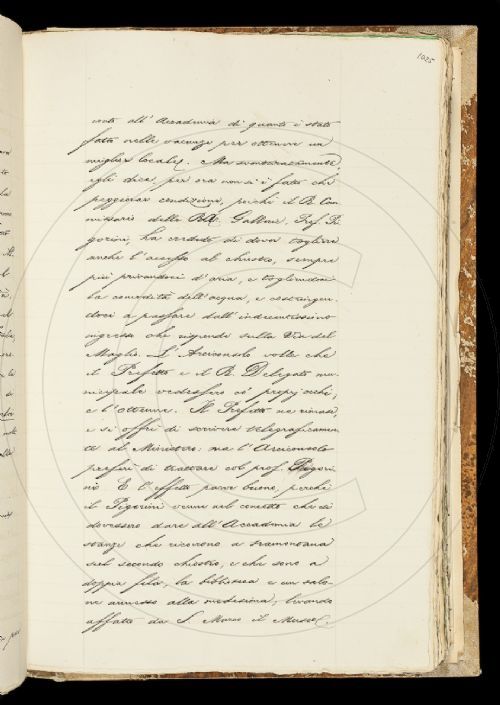 1025
conto all'Accademia di quanto è stato
fatto nelle vacanze per ottenere un
miglior locale. Ma sventuratamente,
egli dice, per ora non si è fatto che
peggiorar condizione, perchè il R. Com
missario delle RR. Gallerie, Prof. Pi
gorini, ha creduto di dover togliere
anche l'accesso al chiostro, sempre
più privandoci d'aria, e togliendoci
la comodità dell'acqua, e costringen-
doci a passare dall'indecentissimo
ingresso che risponde sulla Via del
Maglio. L'Arciconsolo volle che
il Prefetto e il R. Delegato mu-
nicipale vedessero co' propj occhi,
e l'ottenne. Il Prefetto ne rimase,
e si offrì di scrivere telegraficamen
te al Ministero: ma l'Arciconsolo
preferì di trattare col prof. Pigori
ni. E l'effetto parve buono, perchè
il Pigorini venne nel concetto che si
dovessero dare all'Accademia le
stanze che ricorrono a tramontana
sul secondo chiostro, e che sono a
doppia fila, la biblioteca e un salo-
ne annesso alla medesima, levando
affatto da S. Marco il Museo.